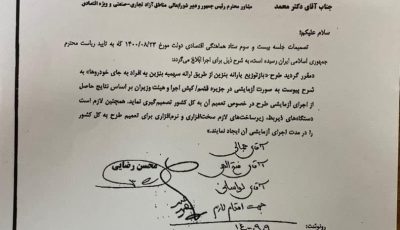 جناب آقای دکتر محمد
مشاور محترم رئیس جمهور و دبیر شورایعالی مناطق آزاد تجاری-صنعتی و ویژه اقتصادی
سلام علیکم؛
تصمیمات جلسه بیست و سوم ستاد هماهنگی اقتصادی دولت مورخ ۱۴۰۰/۰۸/۲۳ که به تایید ریاست محترم
جمهوری اسلامی ایران رسیده است، به شرح ذیل برای اجرا ابلاغ می‌گردد:
«مقرر گردید طرح «بازتوزیع یارانه بنزین از طریق ارائه سهمیه بنزین به افراد به جای خودروها» به
شرح پیوست به صورت آزمایشی در جزیره قشم/کیش اجرا و هیئت وزیران بر اساس نتایج حاصل
از اجرای آزمایشی طرح در خصوص تعمیم آن به کل کشور تصمیم‌گیری نماید، همچنین لازم است
دستگاه‌های ذیربط، زیرساخت‌های لازم سخت‌افزاری و نرم‌افزاری برای تعمیم طرح به کل کشور
را در مدت اجرای آزمایشی آن ایجاد نمایند.»
آقای جمالی
محسن رضایی
آقای
آقای
جهت اقدام لازم
رونوشت: